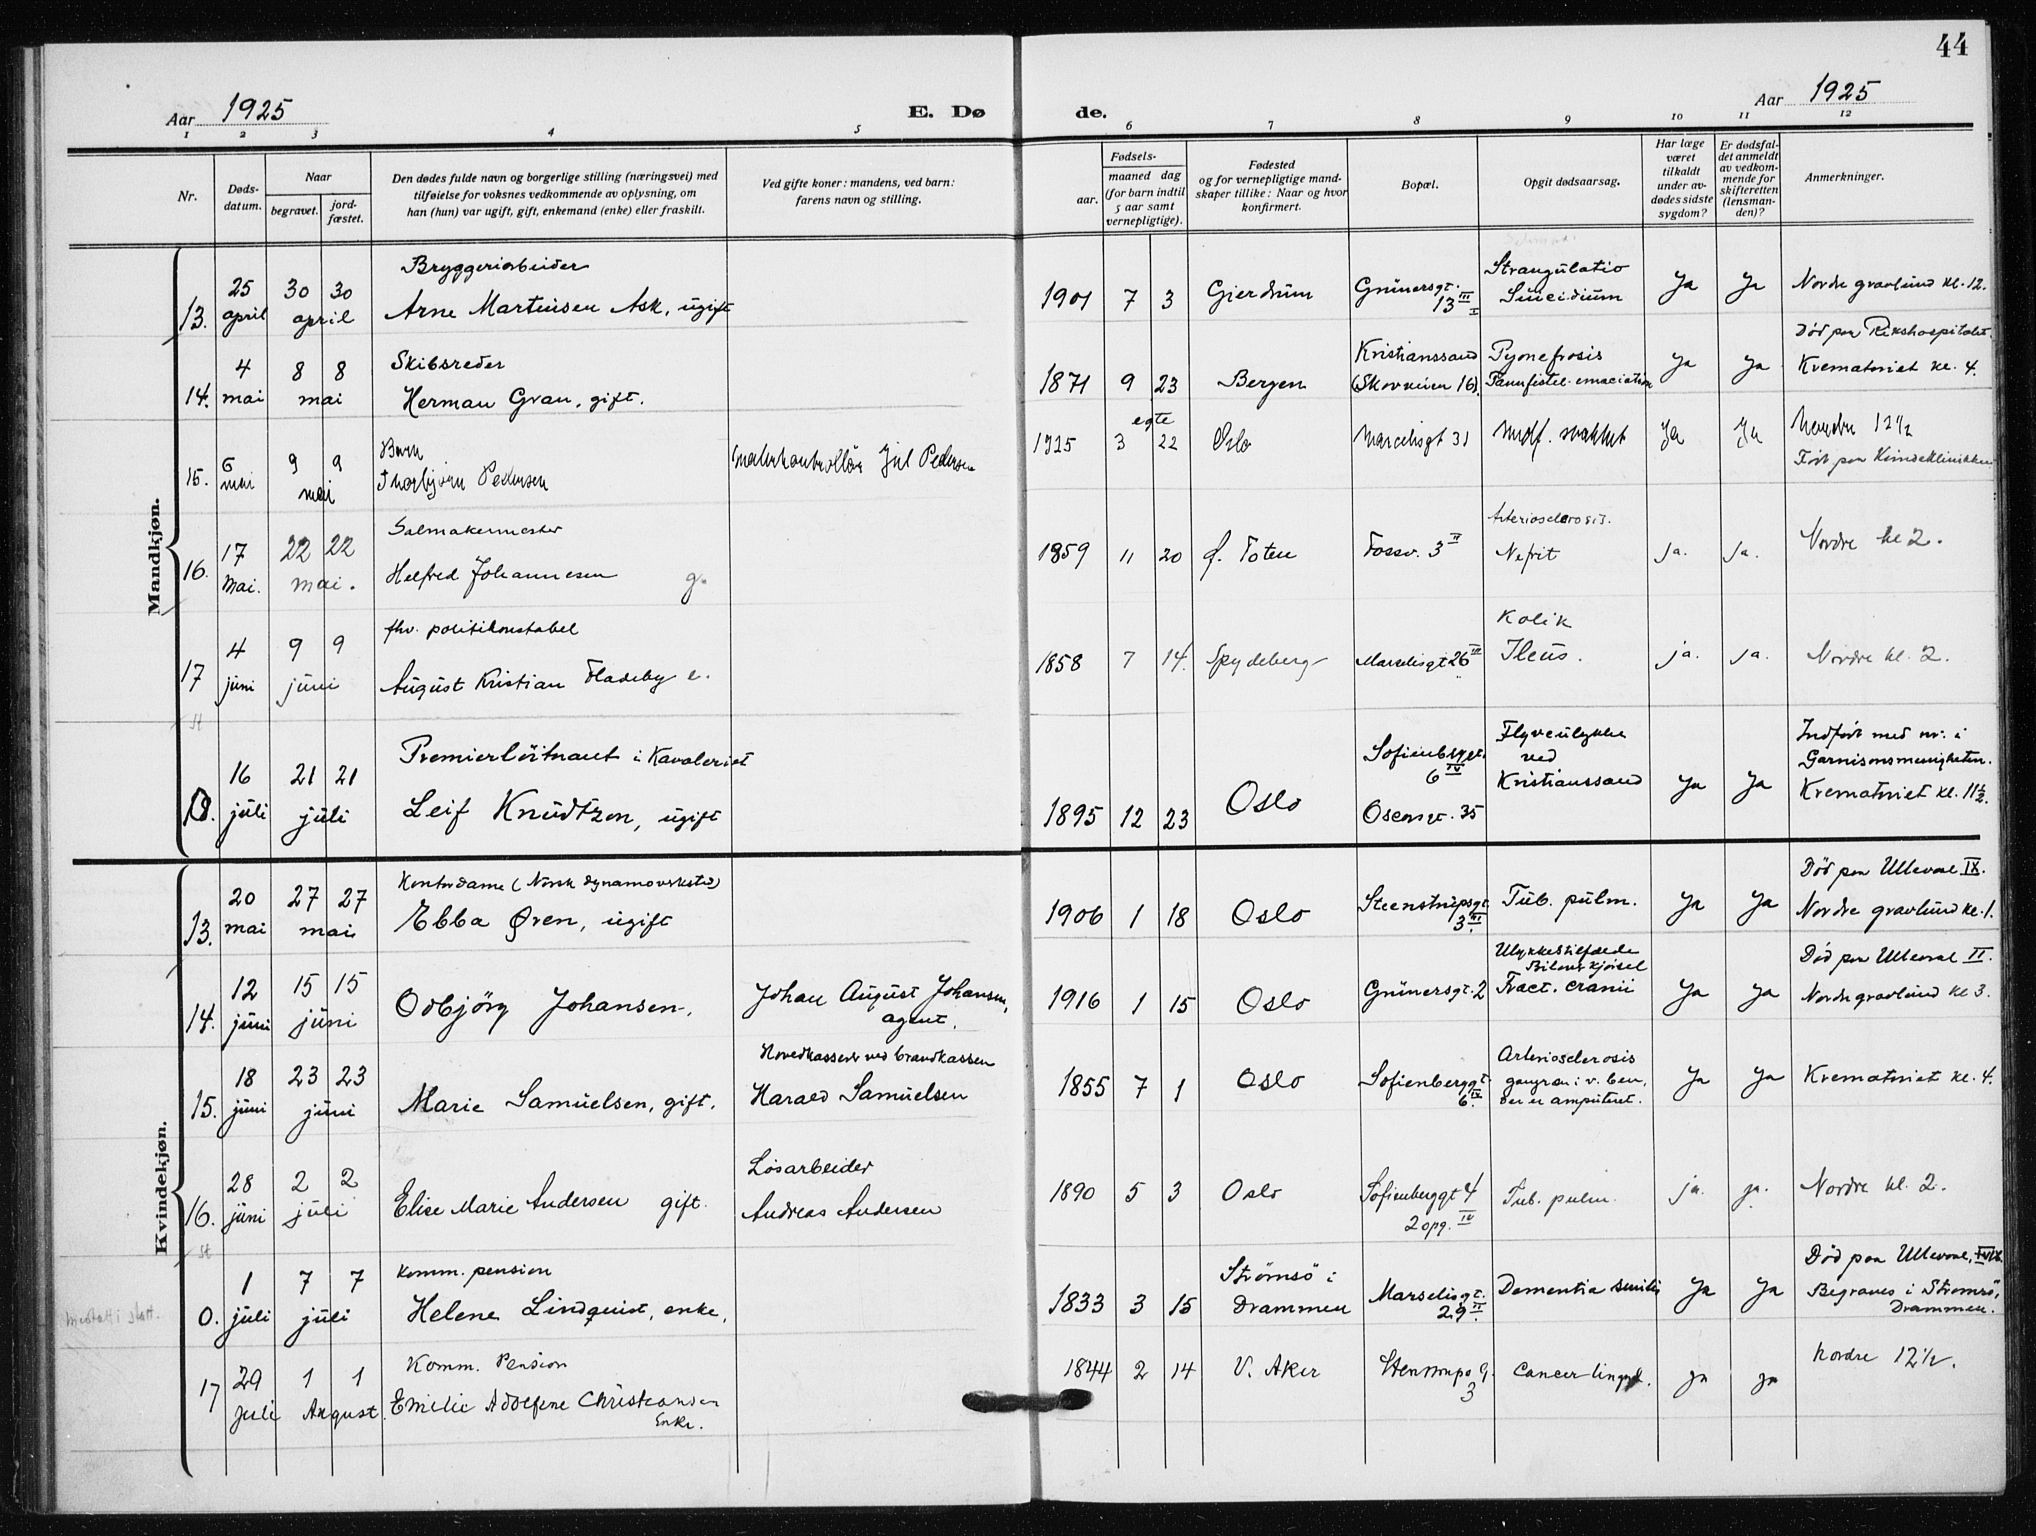 44
Aar 1925 E. Dø de. Aar 1925
1 2 3 4 5 6 7 8 9 10 11 12
Nr.
Døds-
datum.
Naar
begravet.
jord-
fæstet.
Den dødes fulde navn og borgerlige stilling (næringsvei) med
tilføielse for voksnes vedkommende av oplysning, om
han (hun) var ugift, gift, enkemand (enke) eller fraskilt.
Ved gifte koner: mandens, ved barn:
farens navn og stilling.
Fødsels-
aar.
maaned dag
(for barn indtil
5 aar samt
vernepligtige).
Fødested
og for vernepligtige mand-
skaper tillike: Naar og hvor
konfirmert.
Bopæl.
Opgit dødsaarsag.
Har læge
været
tilkaldt
under av-
dødes sidste
sygdom?
Er dødsfal-
det anmeldt
av vedkom-
mende for
skifteretten
(lensman-
den)?
Anmerkninger.
Mandkjøn.
13. 25 april 30 30 april
Bryggeriarbeider
Arne Martinsen Ask, ugift
1901 7 3 Gjerdrum
Grünersgt. 13 III I
Strangulatio
Suicidium
Ja Ja
Nordre gravlund kl. 12.
14. 4 mai 8 8 mai
Skibsreder
Herman Gran, gift.
1871 9 23 Bergen
Kristianssand
(Skovveien 16).
Pyonefrosis
emaciation
Ja Ja
Død paa Rikshospitalet.
Krematoriet kl. 4.
15. 6 mai 9 9 mai
Barn
Thorbjørn Pedersen
Pedersen
egte
1925 3 22 Oslo
Marcelisgt 31
Ja Ja
Nordre 12 1/2
Født paa Kvindeklinikken
16. 17 Mai. 22 22 mai.
Salmakermester
Helfred Johannesen g.
1859 11 20 Ø. Toten
Fossv. 3 II
Arteriosclerosis.
Nefrit
ja. ja.
Nordre kl 2.
17 4 juni 9 9 juni
fhv. politikonstabel
August Kristian Fladeby e.
1858 7 14. Spydeberg
Marselisgt 26 III
Kolik
Ileus.
ja. ja.
Nordre kl. 2.
st
0. 16 juli 21 21 juli
Premierlöitnant i Kavaleriet
Leif Knudtzon, ugift
1895 12 23 Oslo
Sofienbergt. 6 IV
Oscarsgt. 35
Flyveulykke
ved
Kristianssand
Ja Ja
Indført med nr. i
Garnisonsmenigheten.
Krematoriet kl. 11 1/2.
Kvindekjøn.
13. 20 mai 27 27 mai
Kontordame (Norsk dynamoverksted)
Ebba Øren, ugift
1906 1 18 Oslo
Steenstrupsgt. 3 III
Tub. pulm.
Ja Ja
Död paa Ulleval IX.
Nordre gravlund kl. 1.
14. 12 juni 15 15 juni
Odbjörg Johansen,
Johan August Johansen,
agent.
1916 1 15 Oslo
Grünersgt. 2
Ulykkestilfælde
Biloverkjørsel
Fract. cranii
Ja Ja
Död paa Ulleval II.
Nordre gravlund kl 3.
15. 18 juni 23 23 juni
Marie Samuelsen, gift.
Hovedkasserer ved brandkassen
Harald Samuelsen
1855 7 1 Oslo
Sofienberggt. 6 IV.
Arteriosclerosis
gangræn i v. ben,
der er amputeret.
Ja Ja
Krematoriet kl. 4.
16. 28 juni 2 2 juli
Elise Marie Andersen gift.
Løsarbeider
Andreas Andersen
1890 5 3 Oslo
Sofienberggt 4
2 opg. IV
Tub. pulm.
ja. ja.
Nordre kl. 2.
st
0. 1 juli 7 7 juli
Komm. pension
Helene Lindquist, enke,
1833 3 15 Strømsö i
Drammen
Marselisgt. 29 II
Dementia senilis
Ja Ja
Død paa Ulleval,
Begraves i Strømsö,
Drammen.
17 29 juli 1 1 August.
Komm. Pension
Emilie Adolfine Christiansen
Enke.
1844 2 14 V. Aker
Stenstrups g. 3
Cancer
ja ja
Nordre 12 1/2.